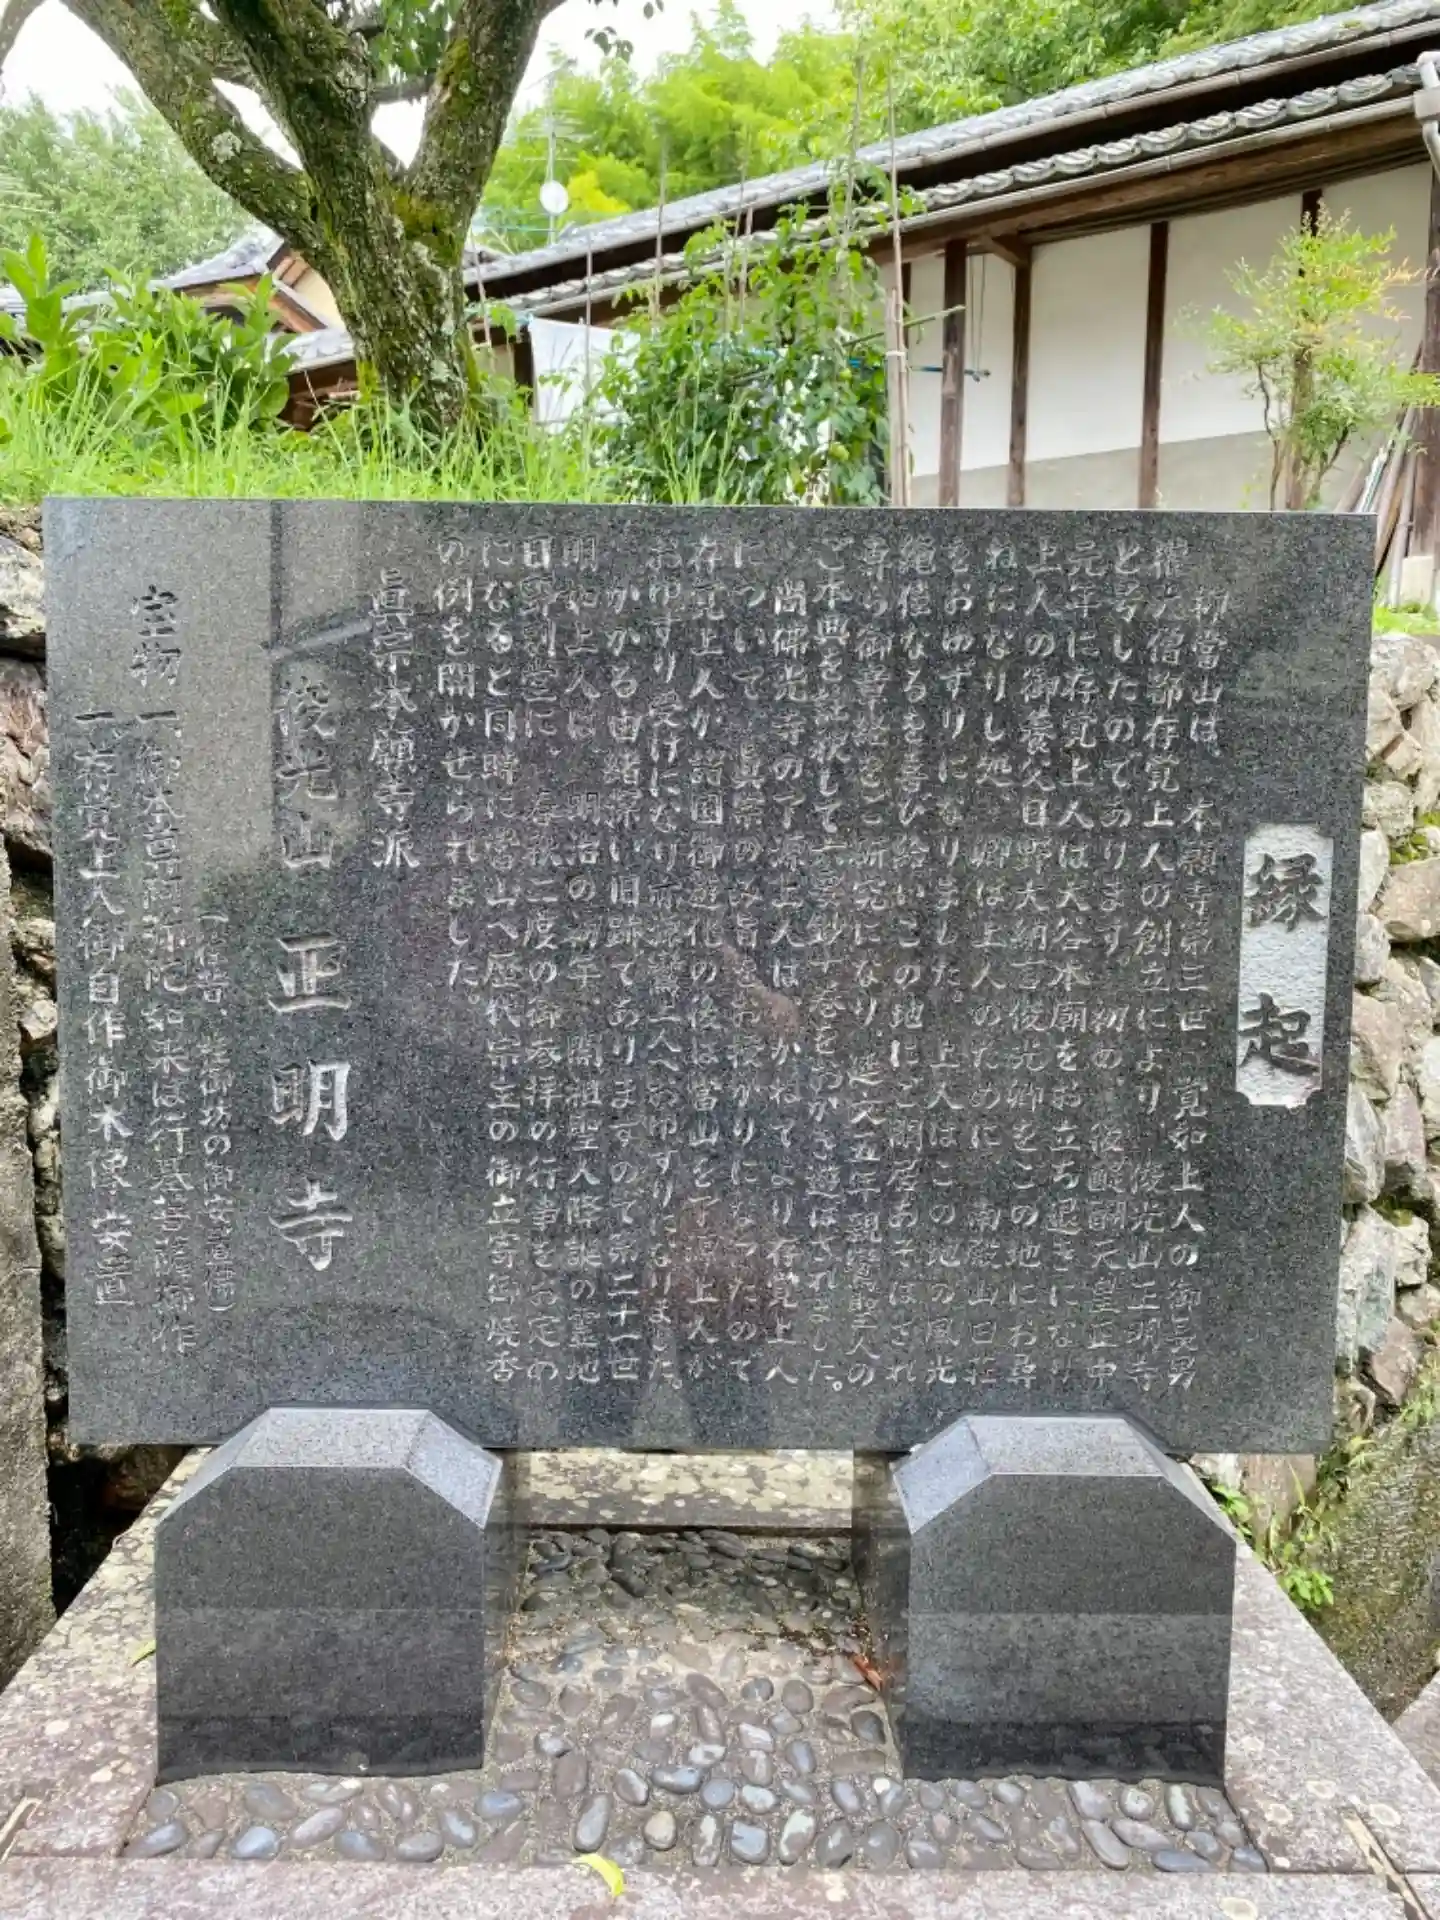 縁起
抑當山は、本願寺第三世、覚如上人の御長男
権大僧都存覚上人の創立により、俊光山正明寺
と号したのであります。初め、後醍醐天皇正中
元年に存覚上人は大谷本廟をお立ち退きになり
上人の御養父日野大納言俊光卿をこの地にお尋
ねになりし処、卿は上人のために、南殿山口荘
をおゆずりになりました。上人はこの地の風光
絶佳なるを喜び給いこの地にご閑居あそばされ
専ら御著述をご研究になり、延文五年親鸞聖人の
ご本典を註釈して六要鈔十巻をおかき遊ばされました。
尚佛光寺の了源上人は、かねてより存覚上人
について、真宗のみ旨をお授かりになったので
存覚上人が諸国御遊化の後は當山を了源上人が
おゆずり受けになり亦源鸞上人へおゆずりになりました。
かかる由緒深い旧跡でありますので第二十一世
明如上人は、明治の初年、開祖聖人降誕の霊地
日野別堂に、春秋二度の御参拝の行事をお定め
になると同時に當山へ歴代宗主の御立寄御焼香
の例を開かせられました。
眞宗本願寺派
俊光山 正明寺
(往昔、 御坊の御安置佛)
宝物 一、御本尊阿弥陀如来は行基菩薩御作
一、存覚上人御自作御木像 安置